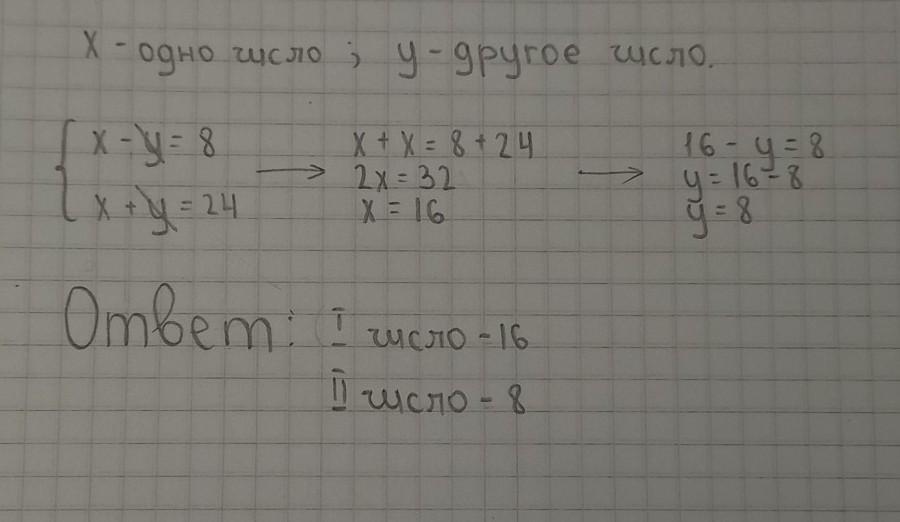 x - одно число; y - другое число.
x - y = 8
x + y = 24
x + x = 8 + 24
2x = 32
x = 16
16 - y = 8
y = 16 - 8
y = 8
Ответ: I число - 16
II число - 8